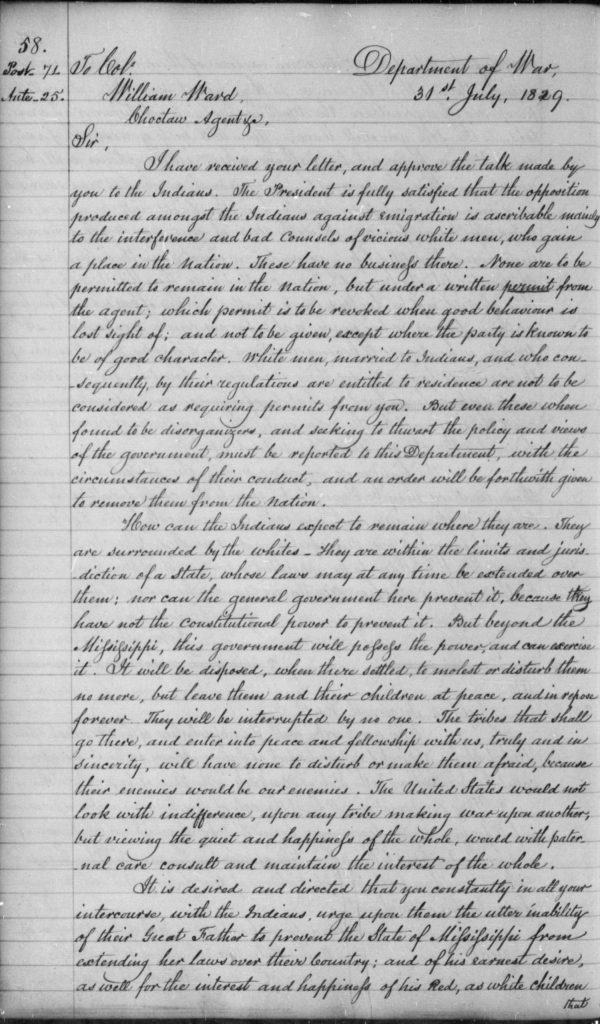 58.
Post- 71. To Col.
Ante- 25. William Ward,
Choctaw Agent &c,
Department of War,
31st July, 1829.
Sir,
I have received your letter, and approve the talk made by
you to the Indians. The President is fully satisfied that the opposition
produced amongst the Indians against emigration is ascribable mainly
to the interference and bad counsels of vicious white men, who gain
a place in the Nation. These have no business there. None are to be
permitted to remain in the Nation, but under a written permit from
the agent; which permit is to be revoked when good behaviour is
lost sight of; and not to be given, except where the party is known to
be of good character. White men, married to Indians, and who con-
-sequently, by their regulations are entitled to residence are not to be
considered as requiring permits from you. But even these when
found to be disorganizers, and seeking to thwart the policy and views
of the government, must be reported to this Department, with the
circumstances of their conduct, and an order will be forthwith given
to remove them from the Nation.
How can the Indians expect to remain where they are. They
are surrounded by the whites - They are within the limits and juris-
-diction of a State, whose laws may at any time be extended over
them; nor can the general government here prevent it, because they
have not the constitutional power to prevent it. But beyond the
Mississippi, this government will possess the power, and can exercise
it. It will be disposed, when there settled, to molest or disturb them
no more, but leave them and their children at peace, and in repose
forever. They will be interrupted by no one. The tribes that shall
go there, and enter into peace and fellowship with us, truly and in
sincerity, will have none to disturb or make them afraid, because
their enemies would be our enemies. The United States would not
look with indifference, upon any tribe making war upon another,
but viewing the quiet and happiness of the whole, would with pater-
-nal care consult and maintain the interest of the whole.
It is desired and directed that you constantly in all your
intercourse, with the Indians, urge upon them the utter inability
of their Great Father to prevent the State of Mississippi from
extending her laws over their Country; and of his earnest desire,
as well for the interest and happiness of his Red, as white children
that